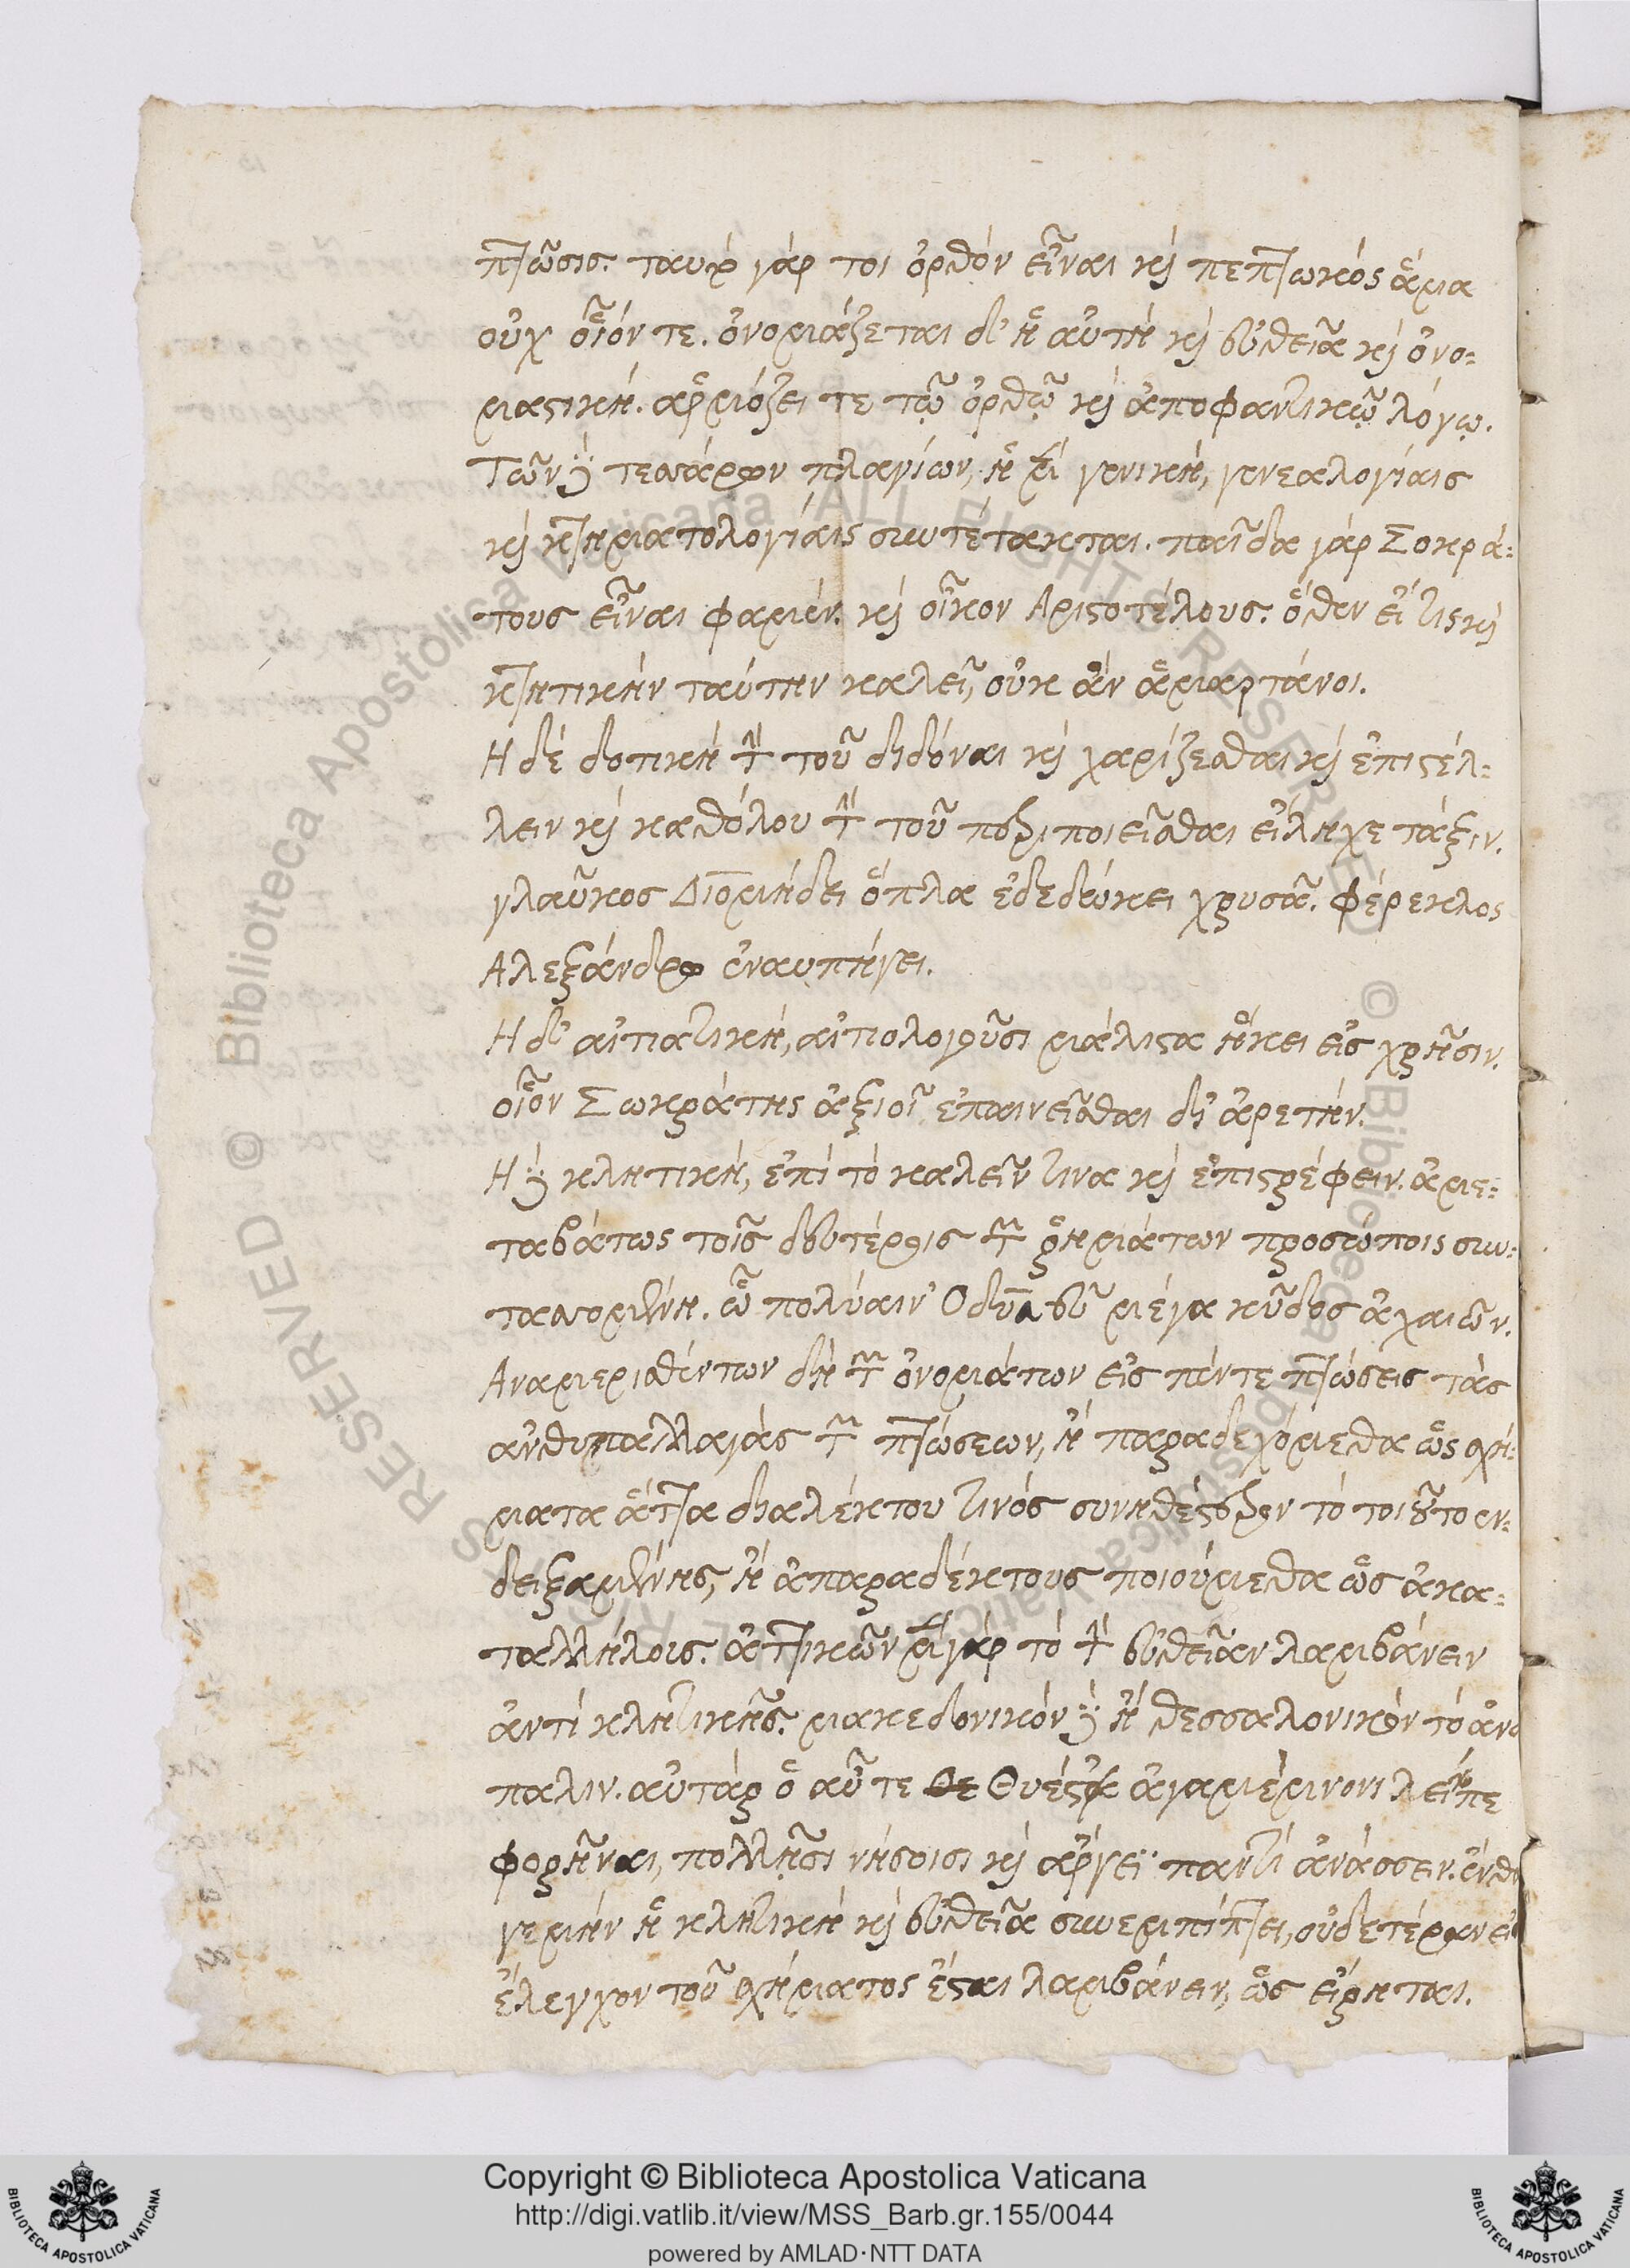 πτῶσις. ταυτὸ γάρ τοι ὀρθόν εἶναι καὶ πεπτωκός ἅμα
οὐχ οἷόν τε. ὀνομάζεται δ' ἡ αὐτὴ καὶ εὐθεῖα καὶ ὀνο-
μαστική. ἁρμόζει τε τῷ ὀρθῷ καὶ ἀποφαντικῷ λόγῳ.
Τῶν δὲ τεσσάρων πλαγίων, ἡ μὲν γενική, γενεαλογίαις
καὶ κτηματολογίαις συντέτακται. παῖδα γάρ Σοκρά-
τους εἶναι φαμέν. καὶ οἶκον Αριστοτέλους. ὅθεν εἴ τις καὶ
κτητικὴν ταύτην καλεῖ, οὐκ ἂν ἁμαρτάνοι.
Η δὲ δοτικὴ τὴν τοῦ διδόναι καὶ χαρίζεσθαι καὶ ἐπιστέλ-
λειν καὶ καθόλου τὴν τοῦ περιποιεῖσθαι εἴληχε τάξιν.
γλαῦκος Διομήδει ὅπλα ἐδεδώκει χρυσᾶ. φέρεκλος
Αλεξάνδρῳ ἐναυπήγει.
Η δ' αἰτιατική, αἰτιολογοῦσι μάλιστα ἥκει εἰς χρῆσιν.
οἷον Σωκράτης ἀξιοῖ ἐπαινεῖσθαι δι' ἀρετήν.
Η δὲ κλητική, ἐπὶ τὸ καλεῖν τινα καὶ ἐπιστρέφειν. ἀμε-
ταβάτως τοῖς δευτέροις τῶν ῥημάτων προσώποις συν-
τασσομένη. ὦ πολύαιν' Οδυσεῦ μέγα κῦδος ἀχαιῶν.
Αναμερισθέντων δὴ τῶν ὀνομάτων εἰς πέντε πτώσεις τὰς
ἀνθυπαλλαγὰς τῶν πτώσεων, ἢ παραδεχόμεθα ὡς σχή-
ματα ἅττα διαλέκτου τινὸς συνηθέστερον τὸ τοιοῦτο ἐν-
δειξαμένης, ἢ ἀπαραδέκτους ποιούμεθα ὡς ἀκα-
ταλλήλοις. ἀττικῶν μὲν γὰρ τὸ τὴν εὐθεῖαν λαμβάνειν
ἀντὶ κλητικῆς. μακεδονικόν δὲ ἢ θεσσαλονικὸν τὸ ἀνά
παλιν. αὐτὰρ ὁ αὖτε Θυέστα ἀγαμέμνονι λεῖπε
φορῆναι, πολλῇσι νήσοισι καὶ ἄργεϊ παντὶ ἀνάσσειν.
μὴν ἡ κλητικὴ καὶ εὐθεῖα συνεμπίπτει, οὐδετέρων
ἔλεγχον τοῦ σχήματος ἔσται λαμβάνειν, ὡς εἴρηται.
Copyright © Biblioteca Apostolica Vaticana
http://digi.vatlib.it/view/MSS_Barb.gr.155/0044
powered by AMLAD·NTT DATA